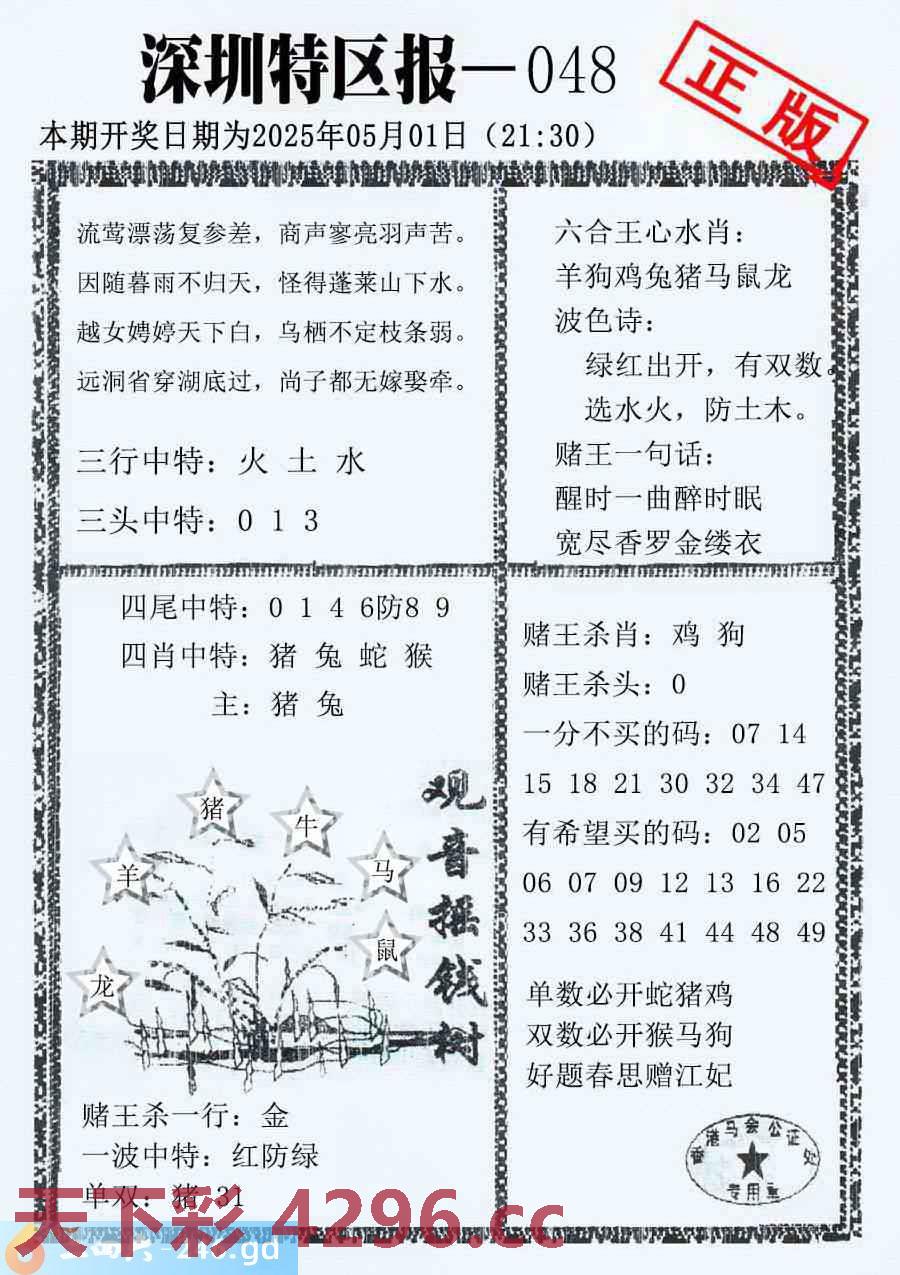 深圳特区报—048
正版
本期开奖日期为2025年05月01日（21:30）
流莺漂荡复参差，商声寥亮羽声苦。
因随暮雨不归天，怪得蓬莱山下水。
越女娉婷天下白，乌栖不定枝条弱。
远洞省穿湖底过，尚子都无嫁娶牵。
三行中特：火 土 水
三头中特：0 1 3
六合王心水肖：
羊狗鸡兔猪马鼠龙
波色诗：
绿红出开，有双数。
选水火，防土木。
赌王一句话：
醒时一曲醉时眠
宽尽香罗金缕衣
四尾中特：0 1 4 6防8 9
四肖中特：猪 兔 蛇 猴
主：猪 兔
观音摇钱树
猪
牛
羊
马
鼠
龙
赌王杀一行：金
一波中特：红防绿
单双：猪 31
赌王杀肖：鸡 狗
赌王杀头：0
一分不买的码：07 14
15 18 21 30 32 34 47
有希望买的码：02 05
06 07 09 12 13 16 22
33 36 38 41 44 48 49
单数必开蛇猪鸡
双数必开猴马狗
好题春思赠江妃
香港马会公证处
专用章
天下彩 4296.cc